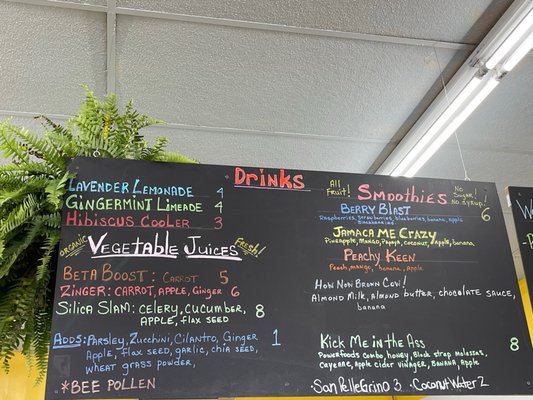 Drinks
LAVENDER LEMONADE 4
GINGERMINT LIMEADE 4
HIBISCUS COOLER 3
ORGANIC VEGETABLE JUICES Fresh!
BETA BOOST: CARROT 5
ZINGER: CARROT, APPLE, GINGER 6
SILICA SLAM: CELERY, CUCUMBER, 8
APPLE, FLAX SEED
ADDS: PARSLEY, ZUCCHINI, CILANTRO, GINGER 1
APPLE, FLAX SEED, GARLIC, CHIA SEED,
WHEAT GRASS POWDER,
*BEE POLLEN
All Fruit! SMOOTHIES No Sugar! No Syrup!
BERRY BLAST 6
Raspberries, strawberries, blueberries, banana, apple
Blackberries
JAMACA ME CRAZY
Pineapple, Mango, Papaya, coconut, apple, banana
PEACHY KEEN
Peach, mango, banana, apple
HOW NOW BROWN COW!
Almond Milk, almond butter, chocolate sauce,
banana
KICK ME IN THE ASS 8
Powerfoods combo, honey, Black strap molassas,
cayenne, apple cider vinager, BANANA, APPLE
•San Pellegrino 3 •Coconut Water 2